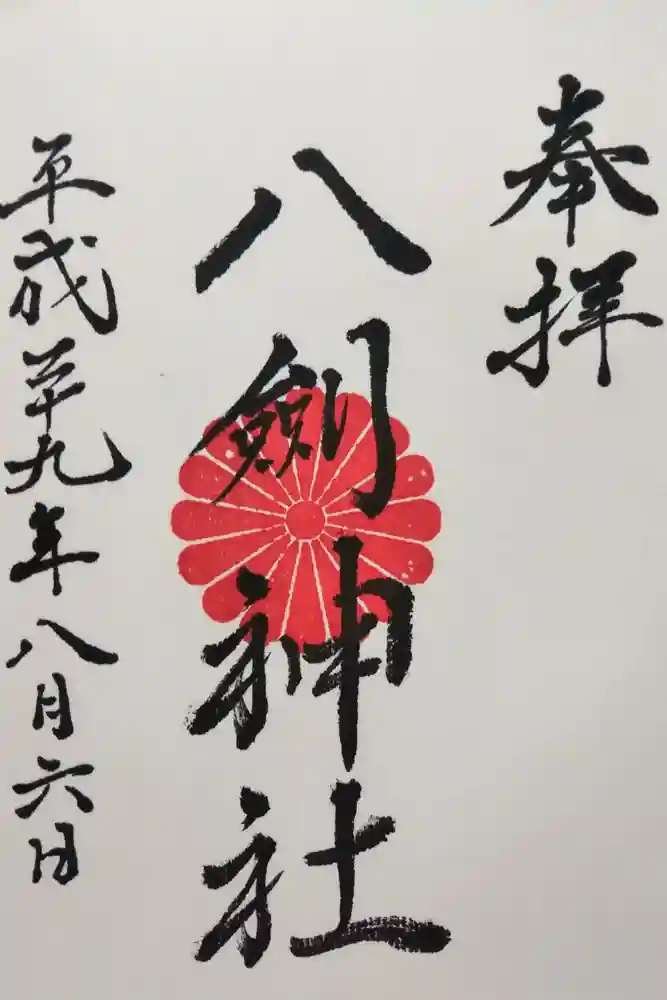 奉拝
八剣神社
平成廿九年八月六日